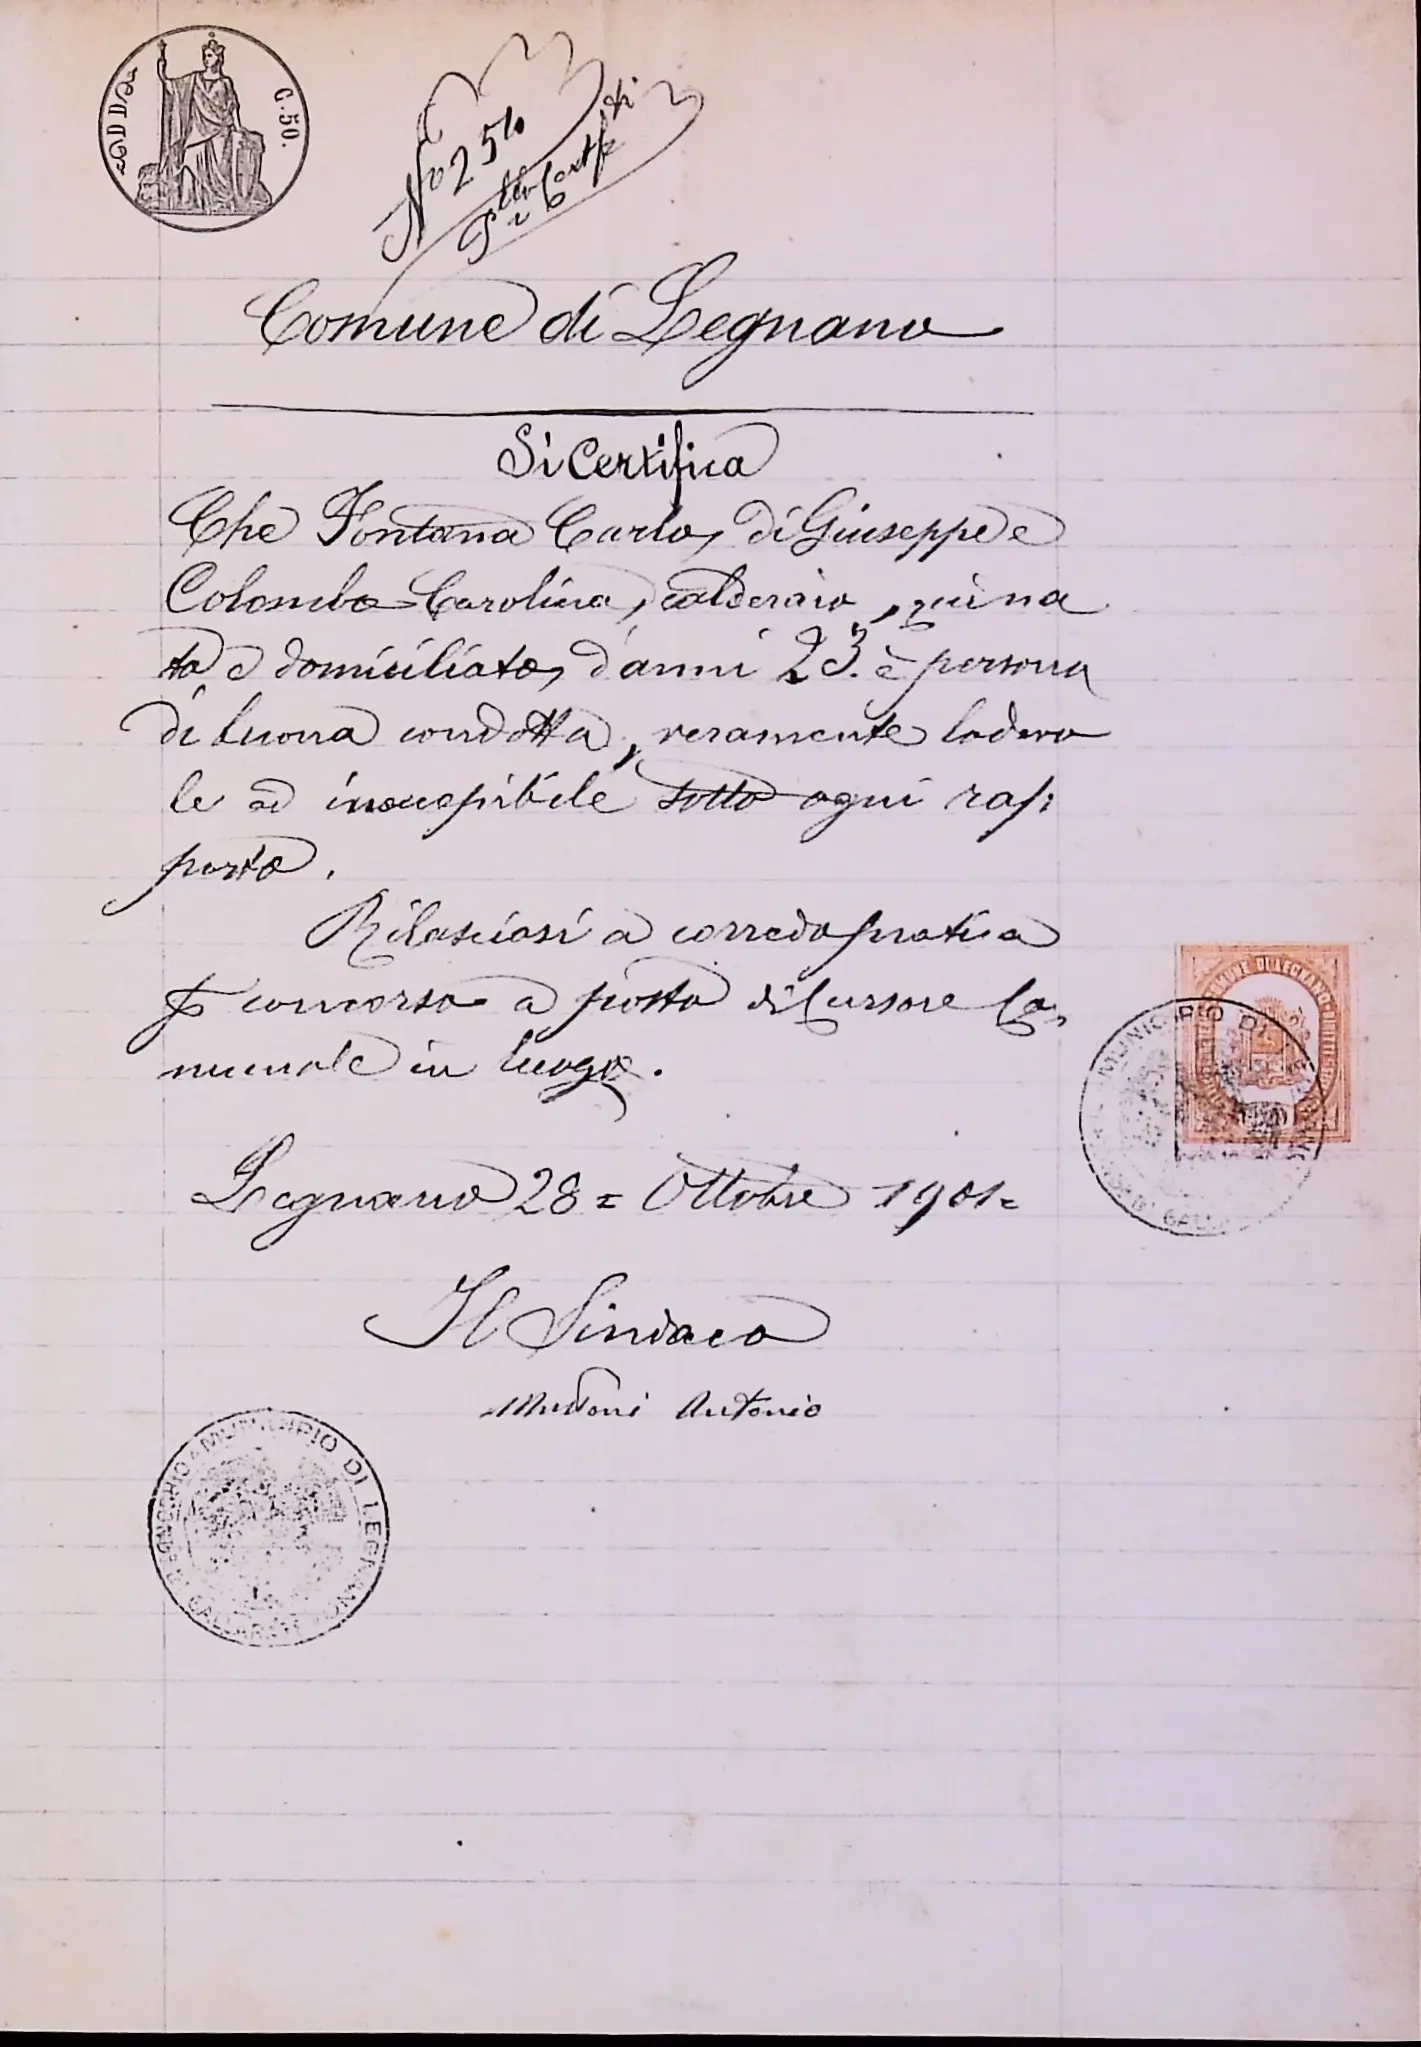 C. 50.
N° 254
Comune di Legnano
Si Certifica
Che Fontana Carlo, di Giuseppe e
Colombo Carolina, calderaio, qui na
to e domiciliato, d'anni 23. è persona
di buona condotta, veramente lodevo
le ed ineccepibile sotto ogni rap:
porto.
Rilasciasi a corredo pratica
p concorso a posto di Cursore Co,
munale in luogo.
Legnano 28 = Ottobre 1901 =
Il Sindaco
Antonio
COMUNE DI LEGNANO
MUNICIPIO DI
MUNICIPIO DI LEGNANO